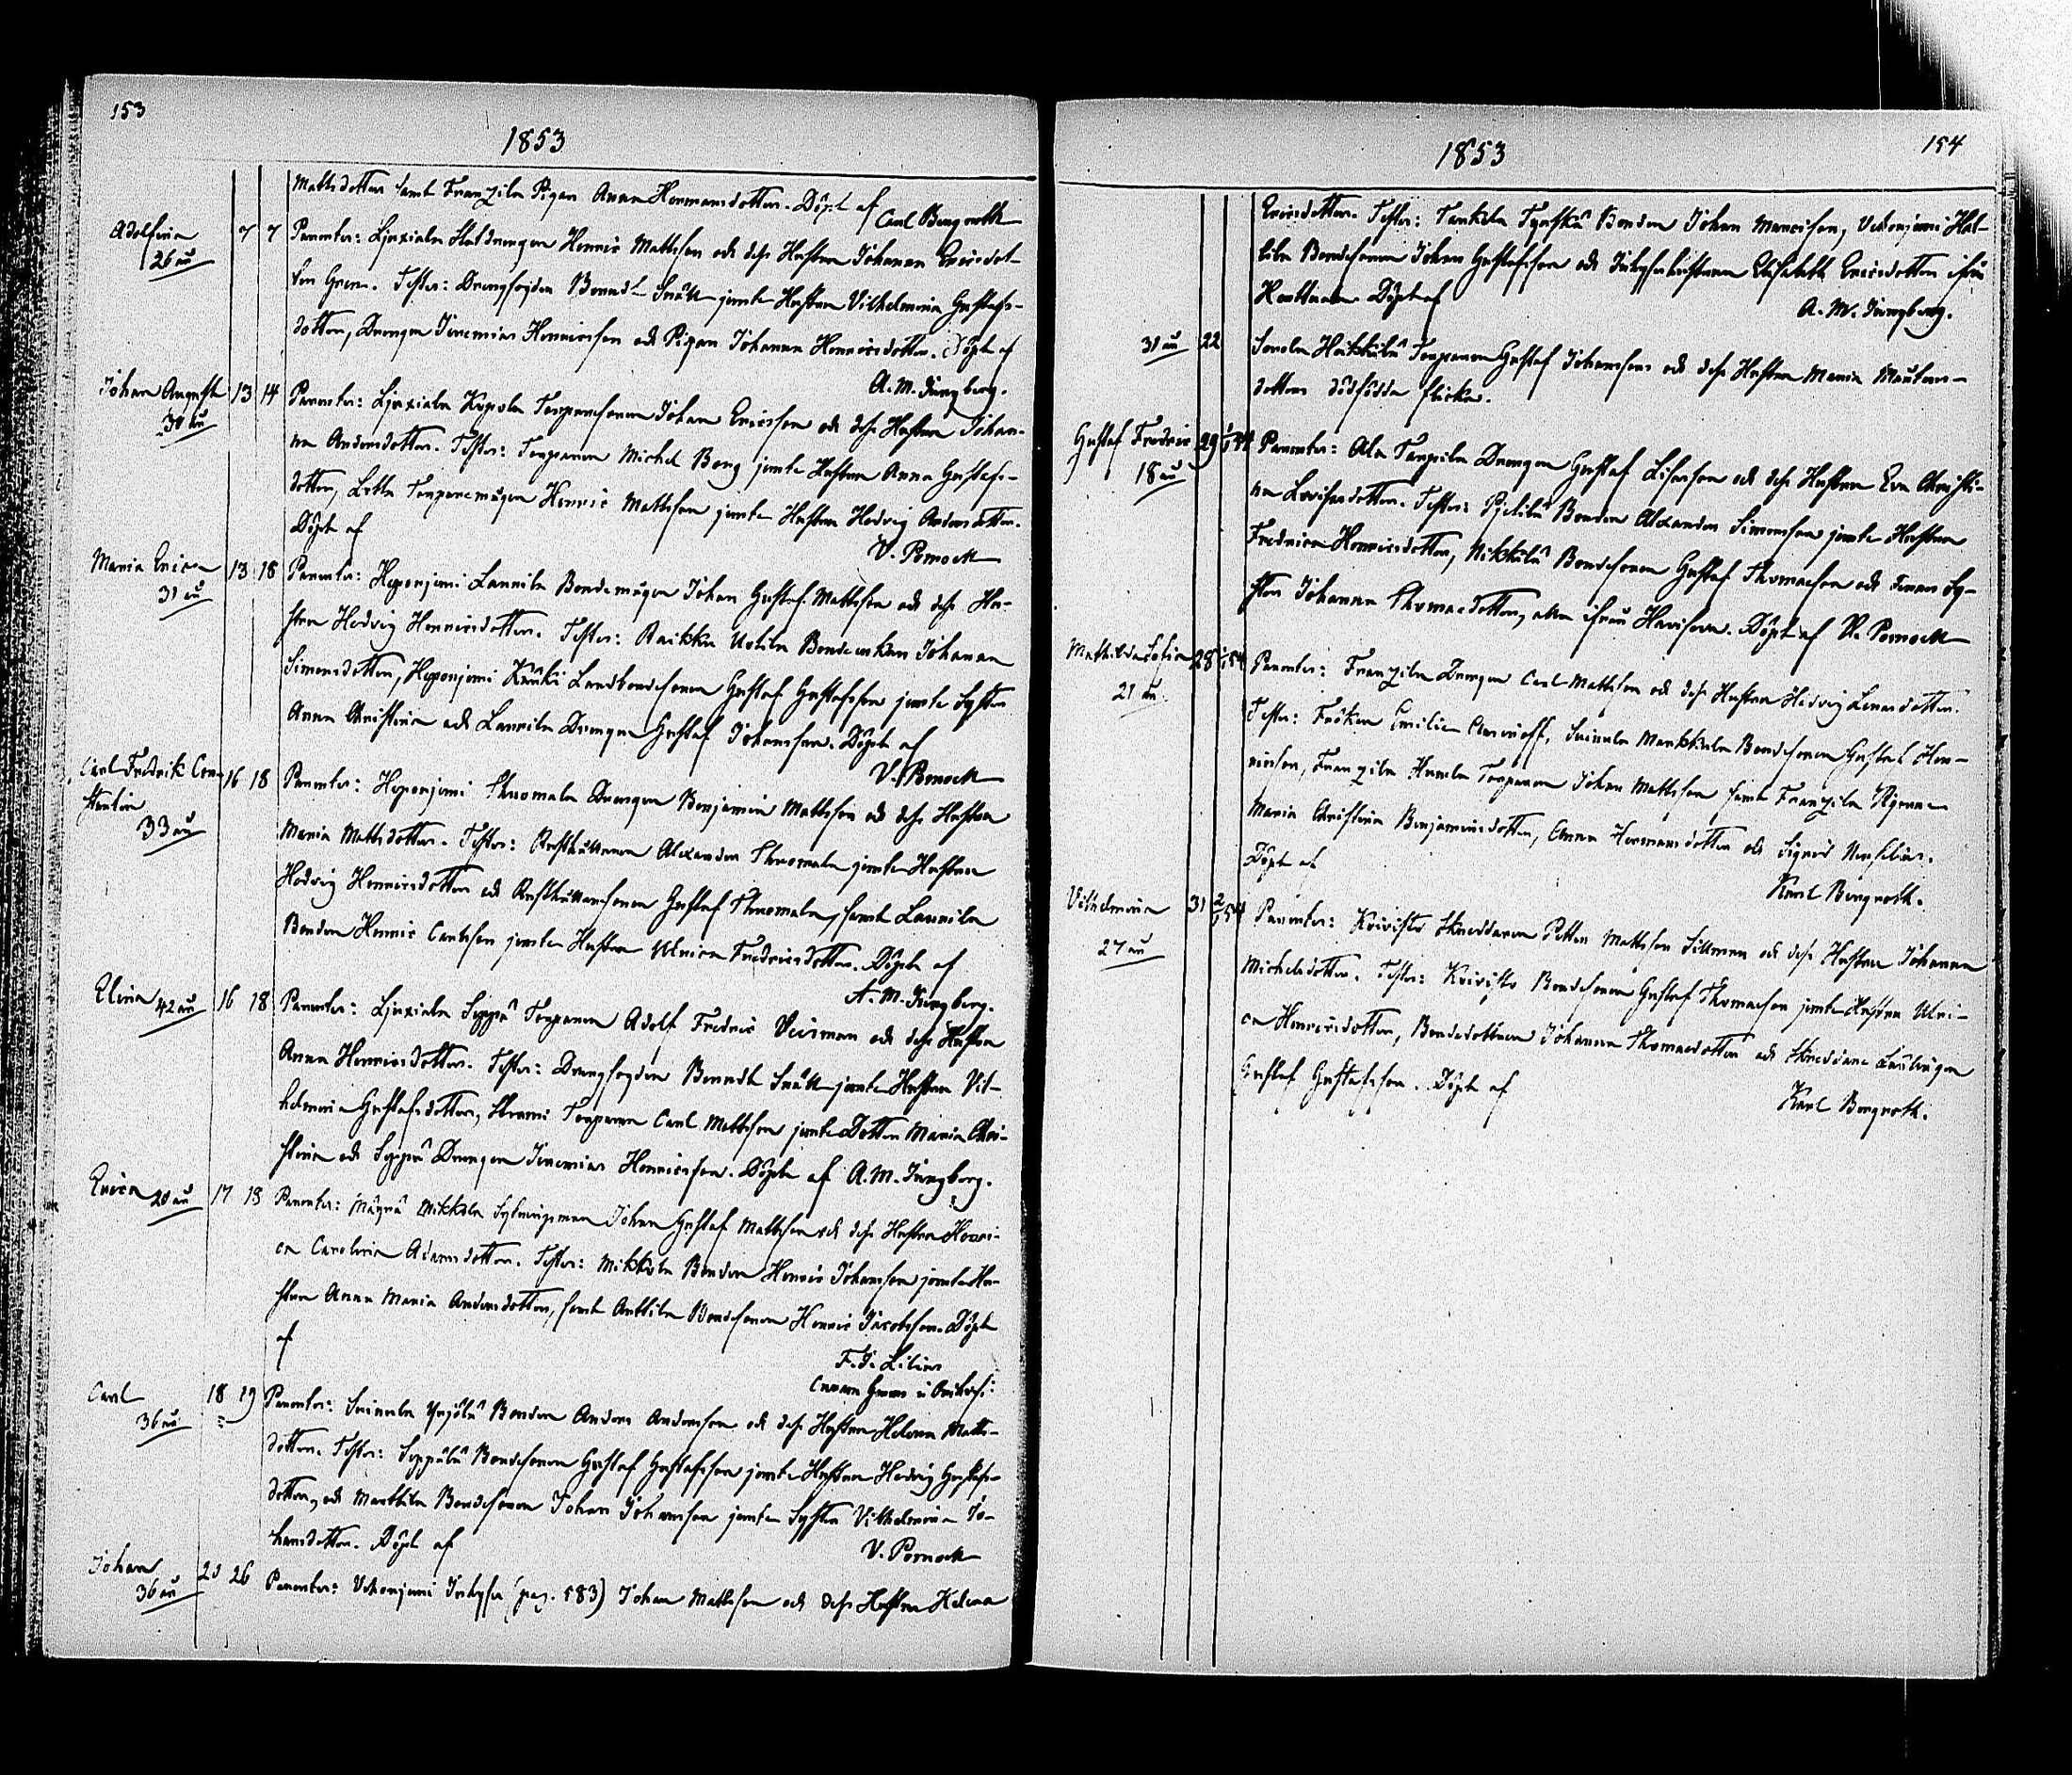 153
1853
Mattsdotter samt Franzila Pigan Anna Hermansdotter. Döpt af
Carl Bergroth
Adolfina 7 7 Parenter: Ljuxiala Staldrengen Henric Mattsson och dess Hustru Johanna Ericsdot-
26 år
ter Gren. Testes: Drengfogden Berndt Snäll jemte Hustrun Vilhelmina Gustafs-
dotter, Drengen Jeremias Henricsson och Pigan Johanna Henricsdotter. Döpt af
A. M. Ljungberg.
Johan August 13 14 Parenter: Ljuxiala Torparesonen Johan Ericsson och dess Hustru Johan-
30 år
na Andersdotter. Testes: Torparen Michel Berg jemte Hustrun Anna Gustafs-
dotter, Torparemågen Henric Mattsson jemte Hustrun Hedvig Andersdotter.
Döpt af
V. Pomoell
Maria Erica 13 18 Parenter: Heponjemi Laurila Bondemågen Johan Gustaf Mattsson och dess Hu-
31 år
stru Hedvig Henricsdotter. Testes: Raikka Uotila Bondeenkan Johanna
Simonsdotter, Heponjemi Landbondesonen Gustaf Gustafsson jemte Syster
Anna Christina och Laurila Drengen Gustaf Johansson. Döpt af
V. Pomoell
Carl Fredrik Con-
stantin 16 18 Parenter: Heponjemi Thuomala Drengen Benjamin Mattsson och dess Hustru
33 år
Maria Mattsdotter. Testes: Rusthållaren Alexander Thuomala jemte Hustrun
Hedvig Henricsdotter och Rusthållaresonen Gustaf Thuomala, samt Laurila
Bonden Henric Carlsson jemte Hustrun Ulrica Fredricsdotter. Döpt af
A. M. Ljungberg.
Elina 42 år 16 18 Parenter: Ljuxiala Seppä Torparen Adolf Fredric och dess Hustru
Anna Henricsdotter. Testes: Drengfogden Berndt Snäll jemte Hustrun Vil-
helmina Gustafsdotter, Torparen Carl Mattsson jemte Dotter Maria Chri-
stina och Seppä Drengen Jeremias Henricsson. Döpt af A. M. Ljungberg.
Erica 20 år 17 18 Parenter: Mäyrä Mikkola Sytningsman Johan Gustaf Mattsson och dess Hustru Henri-
ca Carolina Adamsdotter. Testes: Mikkola Bonden Henric Johansson jemte Hu-
strun Anna Maria Andersdotter, samt Anttila Bondesonen Henric Jacobsson. Döpt
af
F. J. Lilius
Carl 18 19 Parenter: Sainiala Yrjölä Bonden Anders Andersson och dess Hustru Helena Matts-
36 år
dotter. Testes: Seppälä Bondesonen Gustaf Gustafsson jemte Hustrun Hedvig Gustafs-
dotter, och Marttila Bondesonen Johan Johansson jemte Syster Vilhelmina Jo-
hansdotter. Döpt af
V. Pomoell
Johan 20 26 Parenter: Vohonjemi Inhysn (pag. 583) Johan Mattsson och dess Hustru Helena
36 år
1853
154
Ericsdotter. Testes: Tyrskä Bonden Johan Mauritsson, Vohonjemi Hal-
lila Bondesonen Johan Gustafsson och Inhyseshustrun Elisabeth Ericsdotter ifrån
Hoattuala. Döpt af
A. M. Ljungberg.
31 år 22 Heikkilä Torparen Gustaf Johansson och dess Hustru Maria Mårtens-
dotters dödfödda flicka.
Gustaf Fredric 29 1/1 54 Parenter: Ala Drengen Gustaf och dess Hustru Eva Christi-
18 år
na Lovisasdotter. Testes: Bonden Alexander Simonsson jemte Hustrun
Fredrica Henricsdotter, Mikkola Bondesonen Gustaf Thomasson och dennes Sy-
ster Johanna Thomasdotter, alla ifrån. Döpt af V. Pomoell
Mathilda Sofia 28 1/1 54 Parenter: Franzila Drengen Carl Mattsson och dess Hustru Hedvig Lenasdotter.
21 år.
Testes: Fröken Emilie, Sainiala Markkula Bondesonen Gustaf Hen-
ricsson, Franzila Torparen Johan Mattsson samt Franzila Pigorna
Maria Christina Benjaminsdotter, Anna Hermansdotter och Sigrid.
Döpt af
Karl Bergroth.
Vilhelmina 31 2/1 54 Parenter: Koivisto Skreddaren Petter Mattsson Sillman och dess Hustru Johanna
27 år
Michelsdotter. Testes: Koivisto Bondesonen Gustaf Thomasson jemte Hustrun Ulri-
ca Henricsdotter, Bondedottren Johanna Thomasdotter och Skreddare Lärlingen
Gustaf Gustafsson. Döpt af
Karl Bergroth.